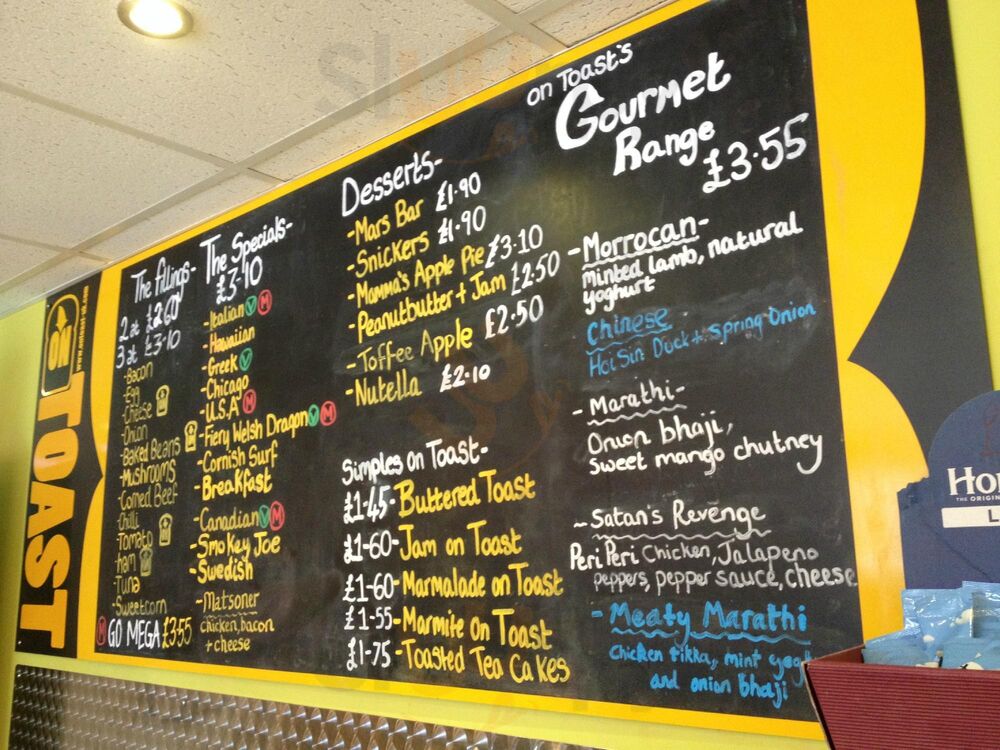 ON
TOAST
The Fillings-
2 at £2.60
3 at £3.10
-Bacon
-Egg
-Cheese
-Onion
-Baked Beans
-Mushrooms
-Corned Beef
-Chilli
-Tomato
-ham
-Tuna
-Sweetcorn
M GO MEGA £3.55
The Specials-
£3.10
-Italian V M
-Hawaiian
-Greek V
-Chicago
-U.S.A M
-Fiery Welsh Dragon V M
-Cornish Surf
-Breakfast
-Canadian V M
-Smokey Joe
-Swedish
-Matsoner
chicken, bacon
+ cheese
Desserts-
-Mars Bar £1.90
-Snickers £1.90
-Mamma's Apple Pie £3.10
-Peanutbutter + Jam £2.50
-Toffee Apple £2.50
-Nutella £2.10
Simples on Toast-
£1-45-Buttered Toast
£1-60-Jam on Toast
£1-60-Marmalade on Toast
£1-55-Marmite on Toast
£1-75-Toasted Tea Cakes
on Toast's
Gourmet
Range
£3.55
-Morrocan-
minted lamb, natural
yoghurt
Chinese
Hoi Sin Duck + Spring Onion
-Marathi-
Onion bhaji,
sweet mango chutney
-Satan's Revenge
Peri Peri Chicken, Jalapeno
peppers, pepper sauce, cheese
-Meaty Marathi
Chicken tikka, mint yog
and onion bhaji
Ho
THE ORIGIN
L